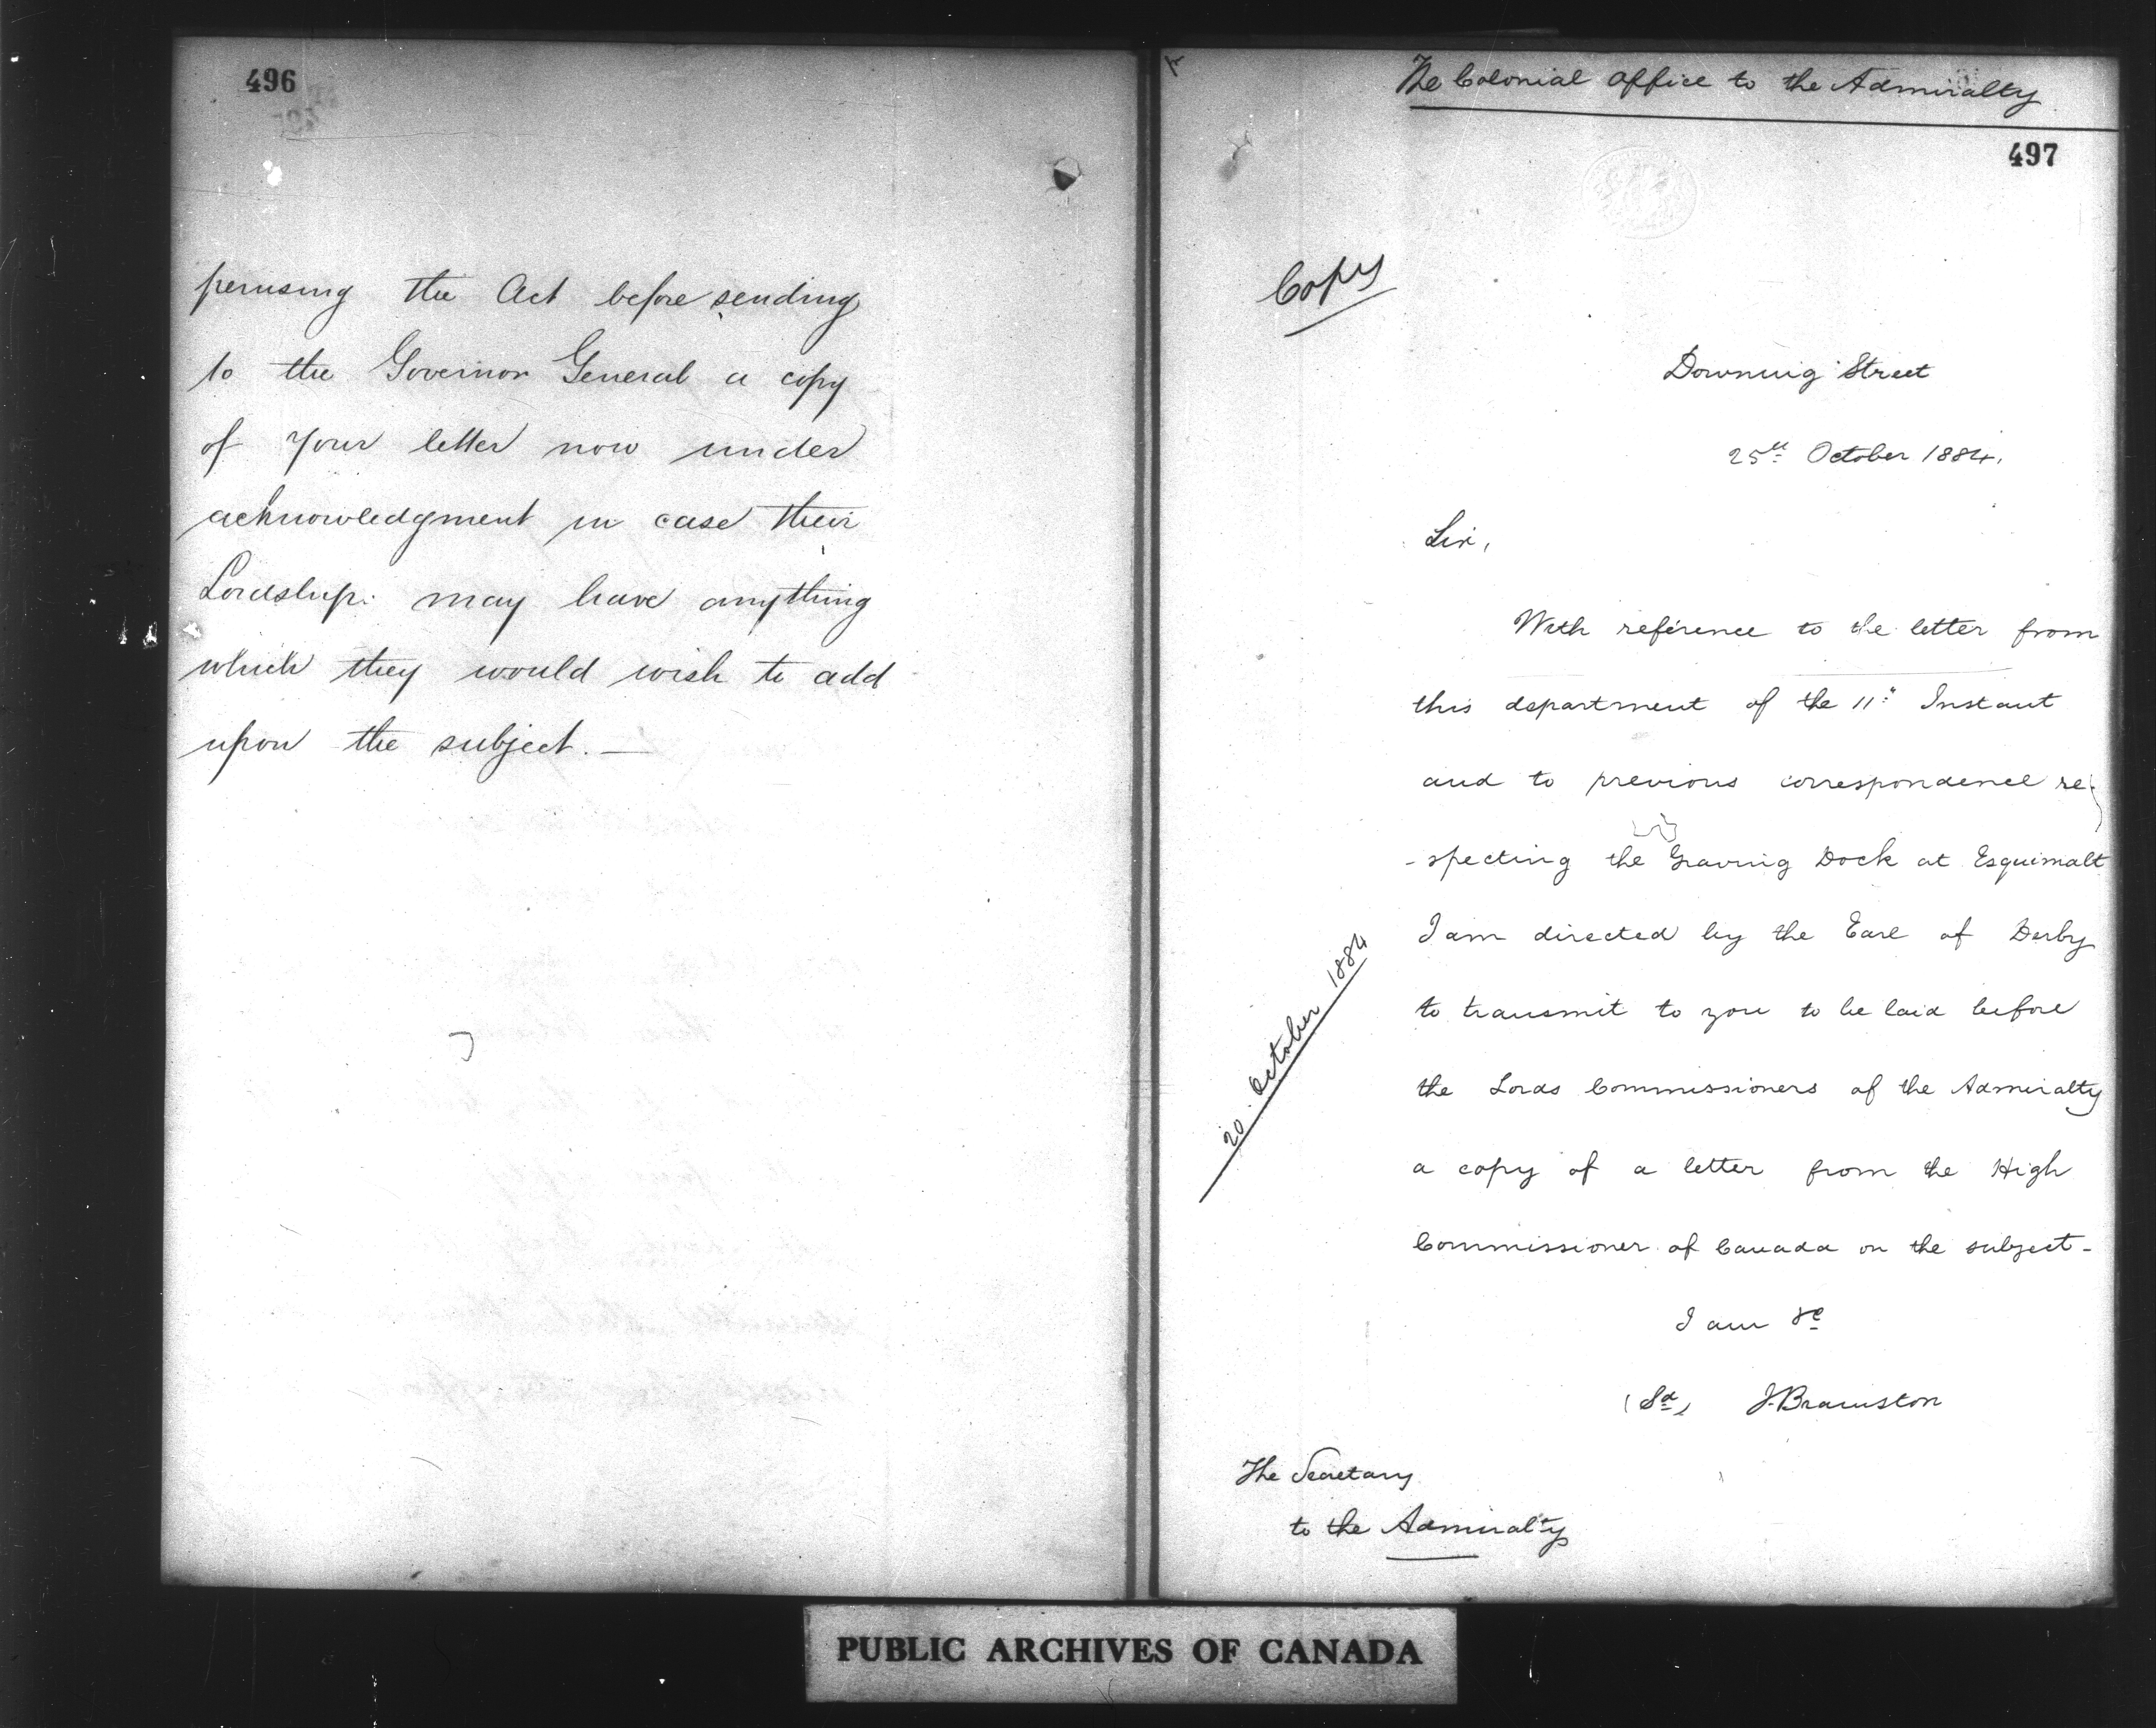 496
perusing the Act before sending
to the Governor General a copy
of your letter now under
acknowledgment in case their
Lordships may have anything
which they would wish to add
upon the subject. —
The Colonial Office to the Admiralty
497
Copy
Downing Street
25th October 1884.
Sir,
With reference to the letter from
this department of the 11th Instant
and to previous correspondence re-
-specting the Graving Dock at Esquimalt
I am directed by the Earl of Derby
to transmit to you to be laid before
the Lords Commissioners of the Admiralty
a copy of a letter from the High
Commissioner of Canada on the subject -
20. October 1884
I am &c
(Sd) J. Bramston
The Secretary
to the Admiralty
PUBLIC ARCHIVES OF CANADA